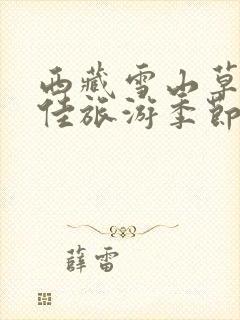 西藏雪山草
佳旅游季节
薛雷